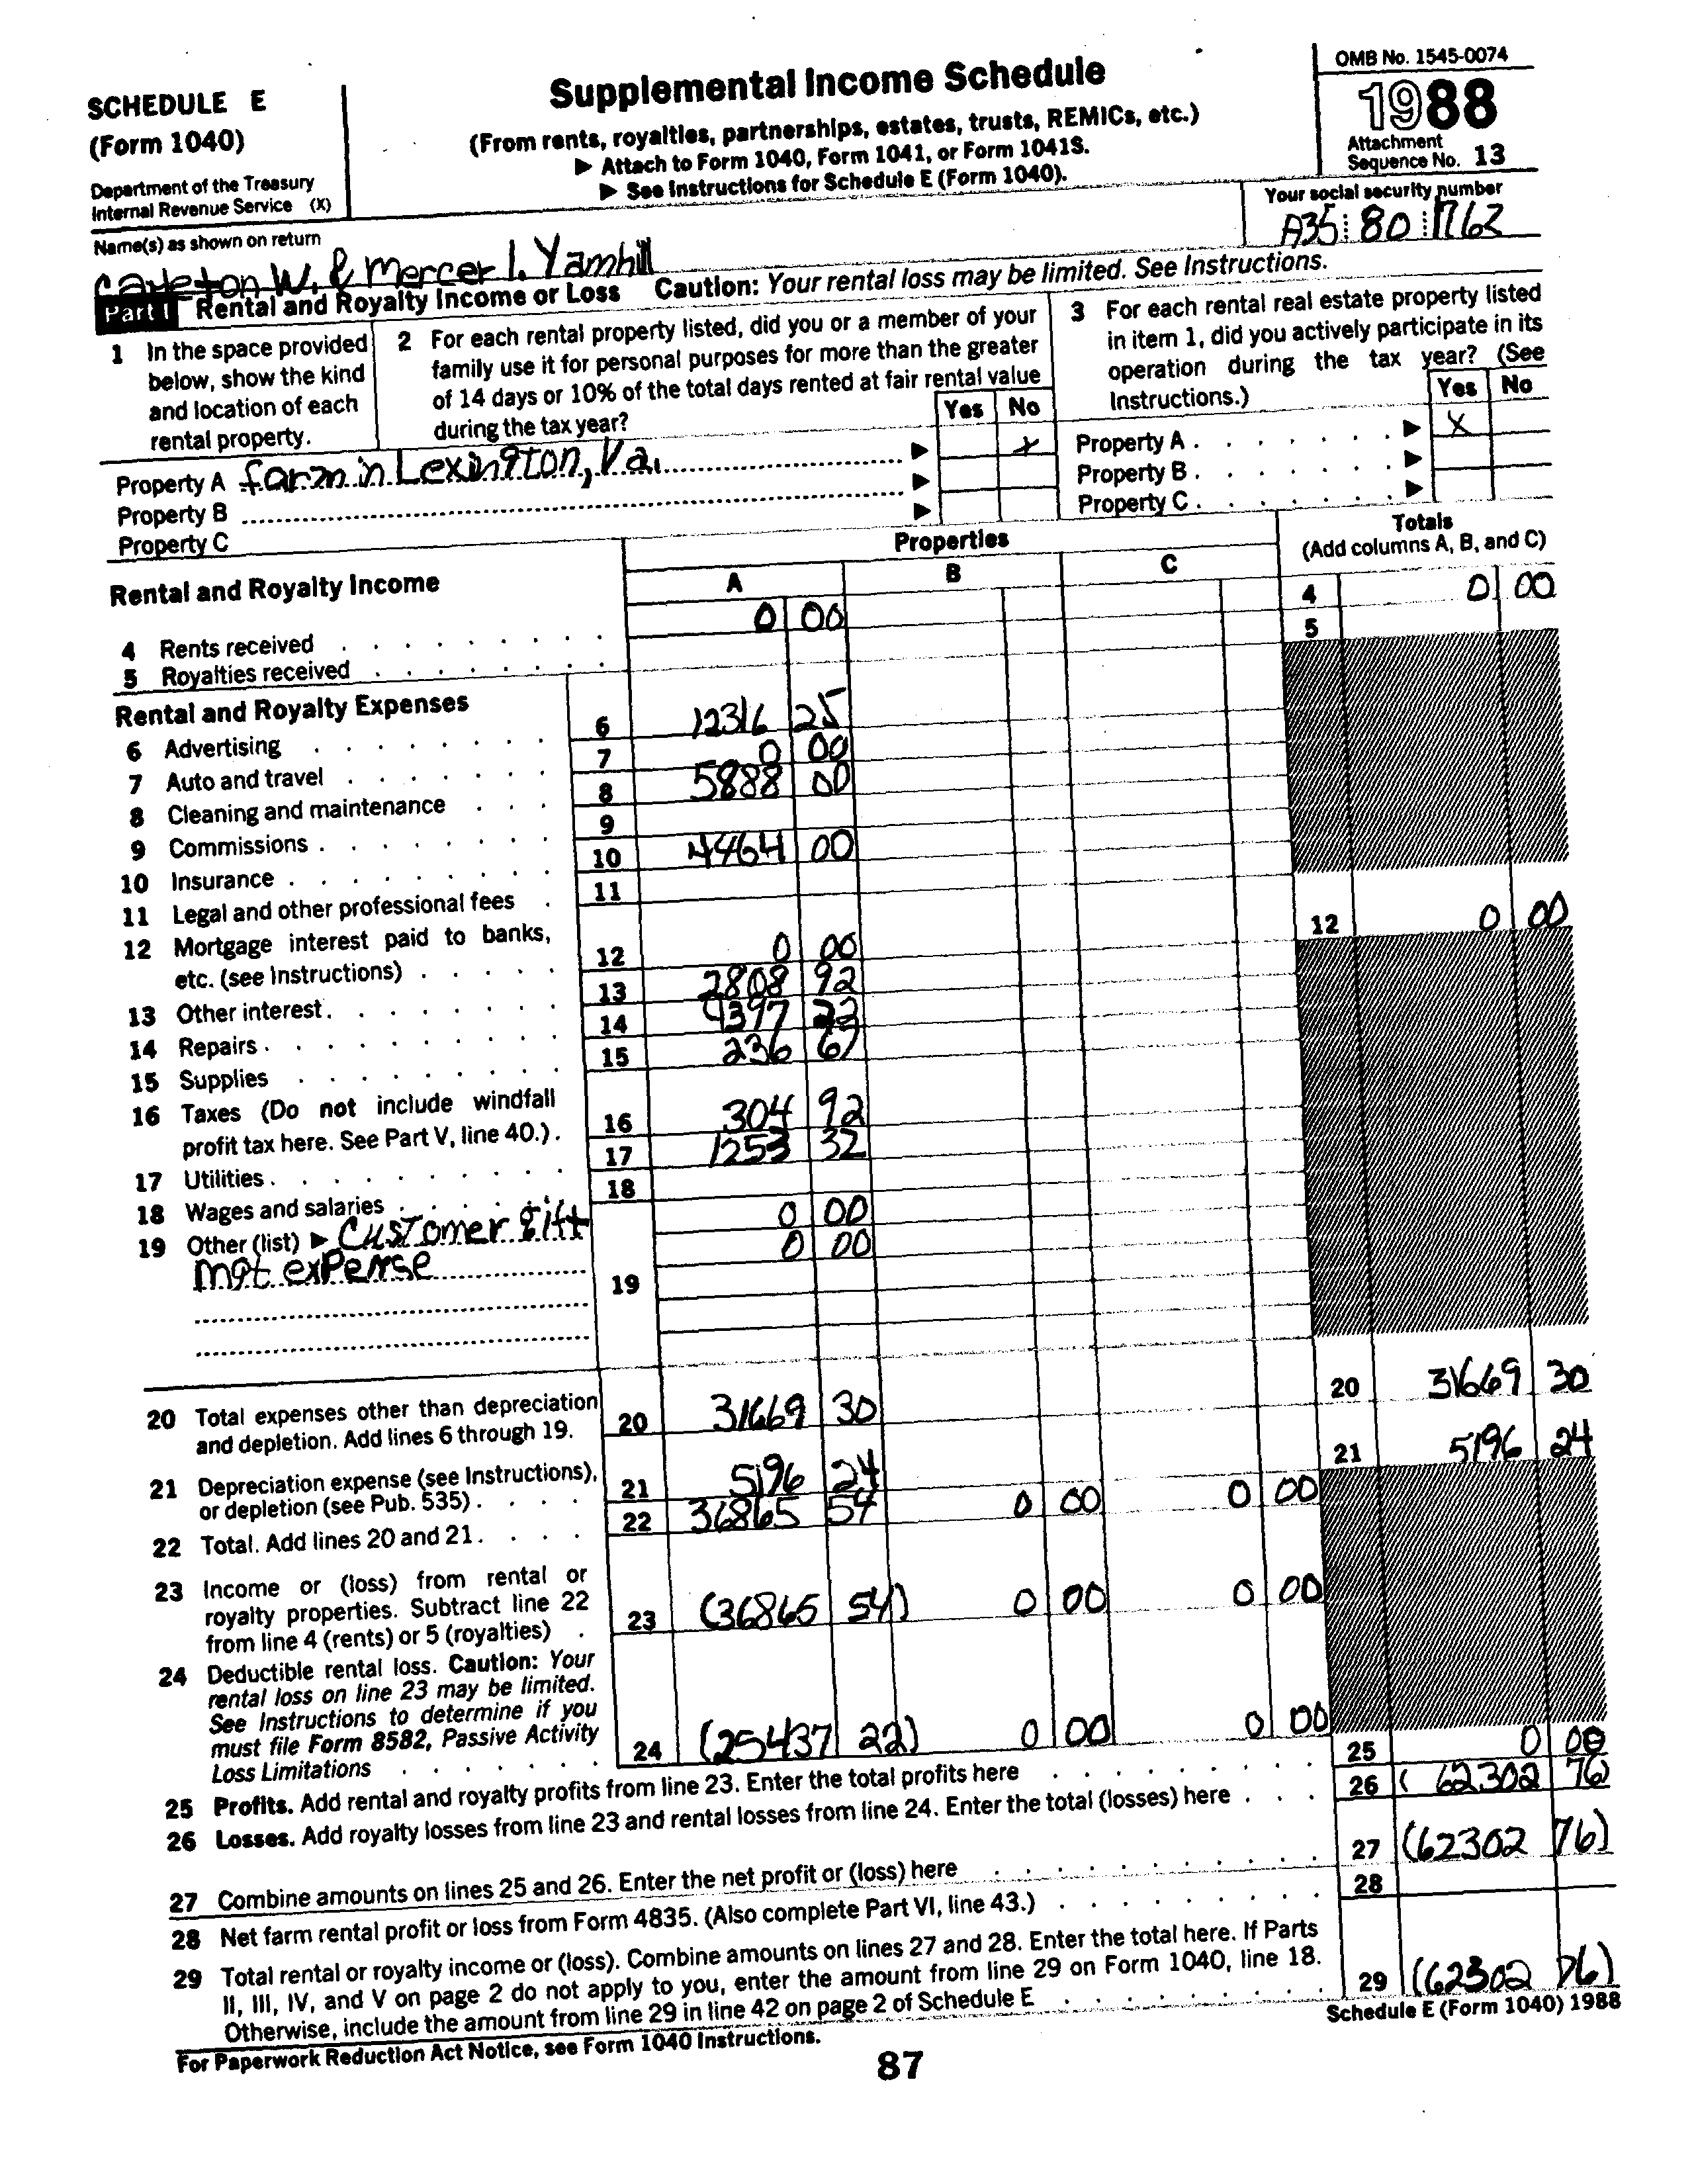 SCHEDULE E
(Form 1040)
Department of the Treasury
Internal Revenue Service (X)
Supplemental Income Schedule
(From rents, royalties, partnerships, estates, trusts, REMICs, etc.)
▶ Attach to Form 1040, Form 1041, or Form 1041S.
▶ See Instructions for Schedule E (Form 1040).
OMB No. 1545-0074
1988
Attachment
Sequence No. 13
Name(s) as shown on return
Carleton W. & Mercer I. Yamhill
Your social security number
A35 80 1762
Part I Rental and Royalty Income or Loss Caution: Your rental loss may be limited. See Instructions.
1 In the space provided
below, show the kind
and location of each
rental property.
2 For each rental property listed, did you or a member of your
family use it for personal purposes for more than the greater
of 14 days or 10% of the total days rented at fair rental value
during the tax year?
Yes No
3 For each rental real estate property listed
in item 1, did you actively participate in its
operation during the tax year? (See
Instructions.)
Yes No
Property A farm in Lexington, Va. ▶ X
Property B ▶
Property C ▶
Property A ▶ X
Property B ▶
Property C ▶
Rental and Royalty Income
Properties
A B C
Totals
(Add columns A, B, and C)
4 Rents received 0 00 4 0 00
5 Royalties received 5
Rental and Royalty Expenses
6 Advertising 6 12316 25
7 Auto and travel 7 0 00
8 Cleaning and maintenance 8 5888 00
9 Commissions 9
10 Insurance 10 4464 00
11 Legal and other professional fees 11
12 Mortgage interest paid to banks,
etc. (see Instructions) 12 0 00 12 0 00
13 Other interest 13 2808 92
14 Repairs 14 4397 22
15 Supplies 15 236 67
16 Taxes (Do not include windfall
profit tax here. See Part V, line 40.) 16 304 92
17 Utilities 17 1253 32
18 Wages and salaries 18
19 Other (list) ▶ Customer gift 0 00
mgt expense 0 00
19
20 Total expenses other than depreciation
and depletion. Add lines 6 through 19. 20 31669 30 20 31669 30
21 Depreciation expense (see Instructions),
or depletion (see Pub. 535) 21 5196 24 21 5196 24
22 Total. Add lines 20 and 21 22 36865 54 0 00 0 00
23 Income or (loss) from rental or
royalty properties. Subtract line 22
from line 4 (rents) or 5 (royalties) 23 (36865 54) 0 00 0 00
24 Deductible rental loss. Caution: Your
rental loss on line 23 may be limited.
See Instructions to determine if you
must file Form 8582, Passive Activity
Loss Limitations 24 (25437 22) 0 00 0 00
25 Profits. Add rental and royalty profits from line 23. Enter the total profits here 25 0 00
26 Losses. Add royalty losses from line 23 and rental losses from line 24. Enter the total (losses) here 26 (62302 76)
27 Combine amounts on lines 25 and 26. Enter the net profit or (loss) here 27 (62302 76)
28 Net farm rental profit or loss from Form 4835. (Also complete Part VI, line 43.) 28
29 Total rental or royalty income or (loss). Combine amounts on lines 27 and 28. Enter the total here. If Parts
II, III, IV, and V on page 2 do not apply to you, enter the amount from line 29 on Form 1040, line 18.
Otherwise, include the amount from line 29 in line 42 on page 2 of Schedule E 29 (62302 76)
For Paperwork Reduction Act Notice, see Form 1040 Instructions.
Schedule E (Form 1040) 1988
87